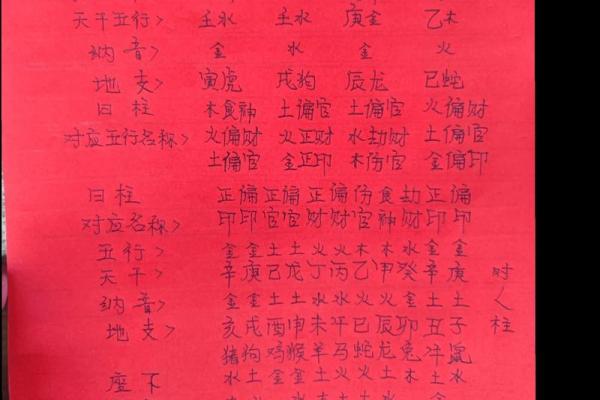 天干五行> 壬水 壬水 庚金 乙木
纳音> 金 水 金 火
地支> 寅虎 戌狗 辰龙 巳蛇
日柱 木食神 土偏官 土偏官 火偏财
对应五行名称> 火偏财 火正财 水劫财 土偏官
土偏官 金正印 木伤官 金偏印
日柱 正偏正偏正偏伤食劫正偏
对应名称> 印印官官财财官神财印印
五行> 金金土土火火木木水金金
天干> 辛庚己戊丁丙乙甲癸辛庚 时
纳音> 金金土土水水火火金土土 人
地支> 亥戌酉申未午巳辰卯丑子 柱
猪狗鸡猴羊马蛇龙兔牛鼠
座下 水土金金土火火土木土水